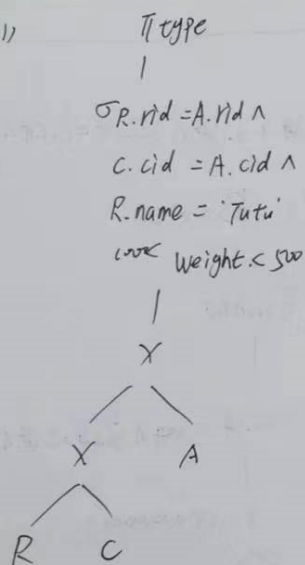 1)
π type
σ R.rid = A.rid ∧
C.cid = A.cid ∧
R.name = 'Tutu'
100< Weight < 500
X
X A
R C